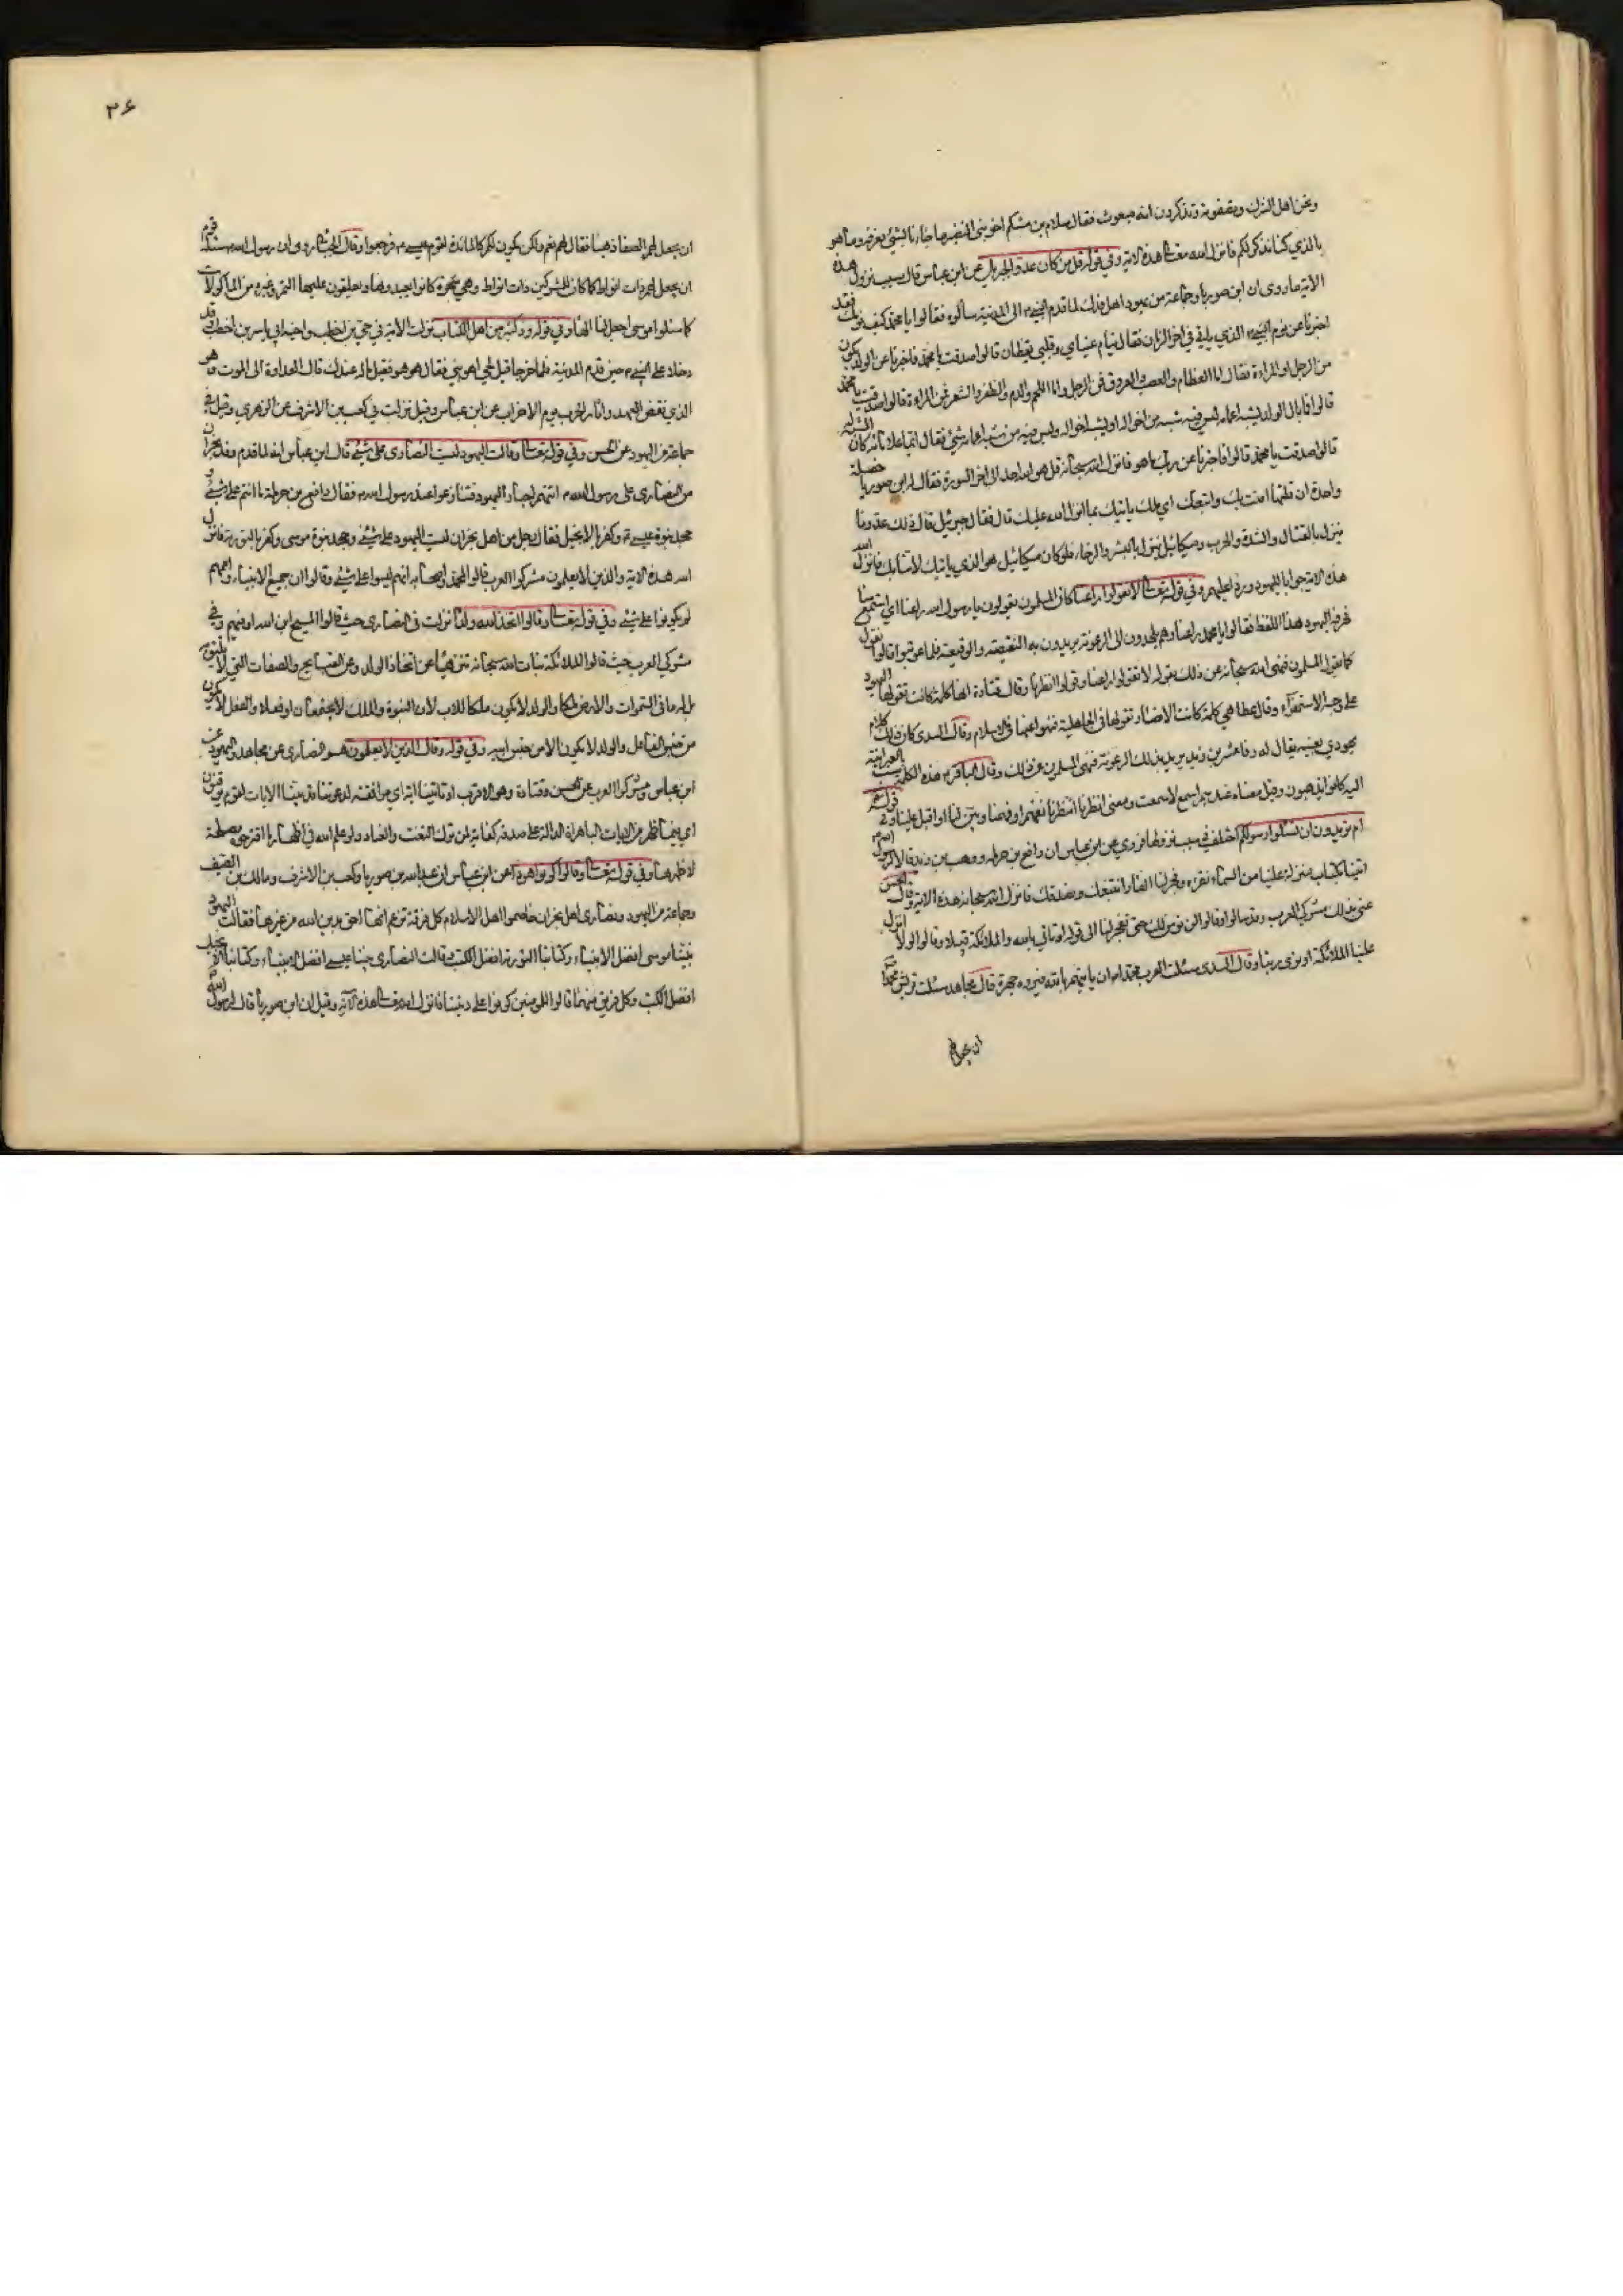 ونحن اهل الشرك ويصفونه وتذكرون انه مبعوث فقال سلام بن مشكم اخو بني النضير ما جاءنا بشيء نعرفه وما هو
بالذي كنا نذكر لكم فانزل الله تعالى هذه الاية وفي قوله قل من كان عدوا لجبريل عن ابن عباس قال سبب نزول هذه
الاية ما روى ان ابن صوريا وجماعة من يهود اهل فدك لما قدم النبي م الى المدينة سألوه فقالوا يا محمد كيف نومك فقد
اخبرنا عن نوم النبي الذي ياتي في اخر الزمان فقال تنام عيناي وقلبي يقظان قالوا صدقت يا محمد فاخبرنا عن الولد يكون
من الرجل او المراءة فقال اما العظام والعصب والعروق فمن الرجل واما اللحم والدم والظفر والشعر فمن المراءة قالوا صدقت يا محمد
قالوا فما بال الولد يشبه اعمامه ليس فيه شبه من اخواله او يشبه اخواله وليس فيه من شبه اعمامه شيء فقال ايهما علا ماؤه كان الشبه له
قالوا صدقت يا محمد قالوا فاخبرنا عن ربك ما هو فانزل الله سبحانه قل هو الله احد الى اخر السورة فقال له ابن صوريا خصلة
واحدة ان قلتها امنت بك واتبعتك اي ملك ياتيك بما انزل الله عليك قال فقال جبرئيل قال ذلك عدونا
ينزل بالقتال والشدة والحرب وميكائيل ينزل بالبشر والرخاء فلو كان ميكائيل هو الذي ياتيك لامنا بك فانزل الله
هذه الاية جوابا لليهود وردا عليهم وفي قوله تعالى لا تقولوا راعنا كان المسلمون يقولون يا رسول الله راعنا اي استمع منا
فحرفت اليهود هذا اللفظ فقالوا يا محمد راعنا وهم يلحدون الى الرعونة يريدون به النقيصة والوقيعة فلما عوتبوا قالوا نقول
كما يقول المسلمون فنهى الله سبحانه عن ذلك بقوله لا تقولوا راعنا وقولوا انظرنا وقال قتادة انها كلمة كانت تقولها اليهود
على وجه الاستهزاء وقال عطا هي كلمة كانت الانصار تقولها في الجاهلية فنهوا عنها في الاسلام وقال السدى كان ذلك كلام
يهودي بعينه يقال له رفاعة بن زيد يريد بذلك الرعونة فنهى المسلمين عن ذلك وقال الباقر م هذه الكلمة سب بالعبرانية
اليه كانوا يذهبون وقيل معناه عندهم اسمع لا سمعت ومعنى انظرنا انتظرنا نفهم او فهمنا وبين لنا او اقبل علينا وفي قوله تعالى
ام تريدون ان تسئلوا رسولكم اختلف في سبب نزولها فروي عن ابن عباس ان رافع بن حرملة ووهب بن زيد قالا لرسول الله
ائتنا بكتاب تنزله علينا من السماء نقرءه وفجر لنا انهارا نتبعك ونصدقك فانزل الله سبحانه هذه الاية وقال الحسن
عنى بذلك مشركي العرب وقد سألوا وقالوا لن نؤمن لك حتى تفجر لنا الى قوله او تاتي بالله والملائكة قبيلا وقالوا لولا انزل
علينا الملائكة او نرى ربنا وقال السدى سئلت العرب محمدا م ان ياتيهم بالله فيروه جهرة وقال مجاهد سئلت قريش محمدا ص
ان يجعل
٣۶
ان يجعل لهم الصفا ذهبا فقال لهم نعم ولكن يكون لكم كالمائدة لقوم عيسى م فرجعوا وقال الجبائي روى ان رسول الله سئله قوم
ان يجعل لهم ذات انواط كما كان للمشركين ذات انواط وهي شجرة كانوا يعبدونها ويعلقون عليها التمر وغيره من الماكولات
كما سئلوا موسى اجعل لنا الها وفي قوله ود كثير من اهل الكتاب نزلت الاية في حيي بن اخطب واخيه ابي ياسر بن اخطب وقد
دخلا على النبي م حين قدم المدينة فلما خرجا قيل لحيي اهو نبي فقال هو هو فقيل ما له عندك قال العداوة الى الموت وهو
الذي نقض العهد واثار الحرب يوم الاحزاب عن ابن عباس وقيل نزلت في كعب بن الاشرف عن الزهري وقيل في
جماعة من اليهود عن الحسن وفي قوله تعالى وقالت اليهود ليست النصارى على شيء قال ابن عباس انه لما قدم وفد نجران
من النصارى على رسول الله م اتتهم احبار اليهود فتنازعوا عند رسول الله م فقال رافع بن حرملة ما انتم على شيء و
جحد نبوة عيسى م وكفر بالانجيل فقال رجل من اهل نجران ليست اليهود على شيء وجحد نبوة موسى وكفر بالتورية فانزل
الله هذه الاية والذين لا يعلمون مشركوا العرب قالوا لمحمد واصحابه انهم ليسوا على شيء وقالوا ان جميع الانبياء واممهم
لم يكونوا على شيء وفي قوله تعالى وقالوا اتخذ الله ولدا نزلت في النصارى حيث قالوا المسيح ابن الله او فيهم وفي
مشركي العرب حيث قالوا الملائكة بنات الله سبحانه تنزيها عن اتخاذ الولد وعن القبايح والصفات التي لا تليق به
بل له ما في السموات والارض ملكا والولد لا يكون ملكا للاب لان البنوة والملك لا يجتمعان او فعلا والفعل لا يكون
من جنس الفاعل والولد لا يكون الا من جنس ابيه وفي قوله وقال الذين لا يعلمون هم النصارى عن مجاهد واليهود عن
ابن عباس ومشركوا العرب عن الحسن وقتادة وهو الاقرب او تاتينا اية اي موافقة لدعوتنا قد بينا الايات لقوم يوقنون
اي فيما ظهر من الايات الباهرات الدالة على صدقه كفاية لمن ترك التعنت والعناد ولو علم الله في اظهار ما اقترحوه مصلحة
لاظهرها وفي قوله تعالى وقالوا كونوا هودا عن ابن عباس ان عبد الله بن صوريا وكعب بن الاشرف ومالك بن الضيف
وجماعة من اليهود ونصارى اهل نجران خاصموا اهل الاسلام كل فرقة تزعم انها احق بدين الله من غيرها فقالت اليهود
نبينا موسى افضل الانبياء وكتابنا التورية افضل الكتب وقالت النصارى نبينا عيسى افضل الانبياء وكتابنا الانجيل
افضل الكتب وكل فريق منهما قالوا للمؤمنين كونوا على ديننا فانزل الله تعالى هذه الاية وقيل ان ابن صوريا قال لرسول الله